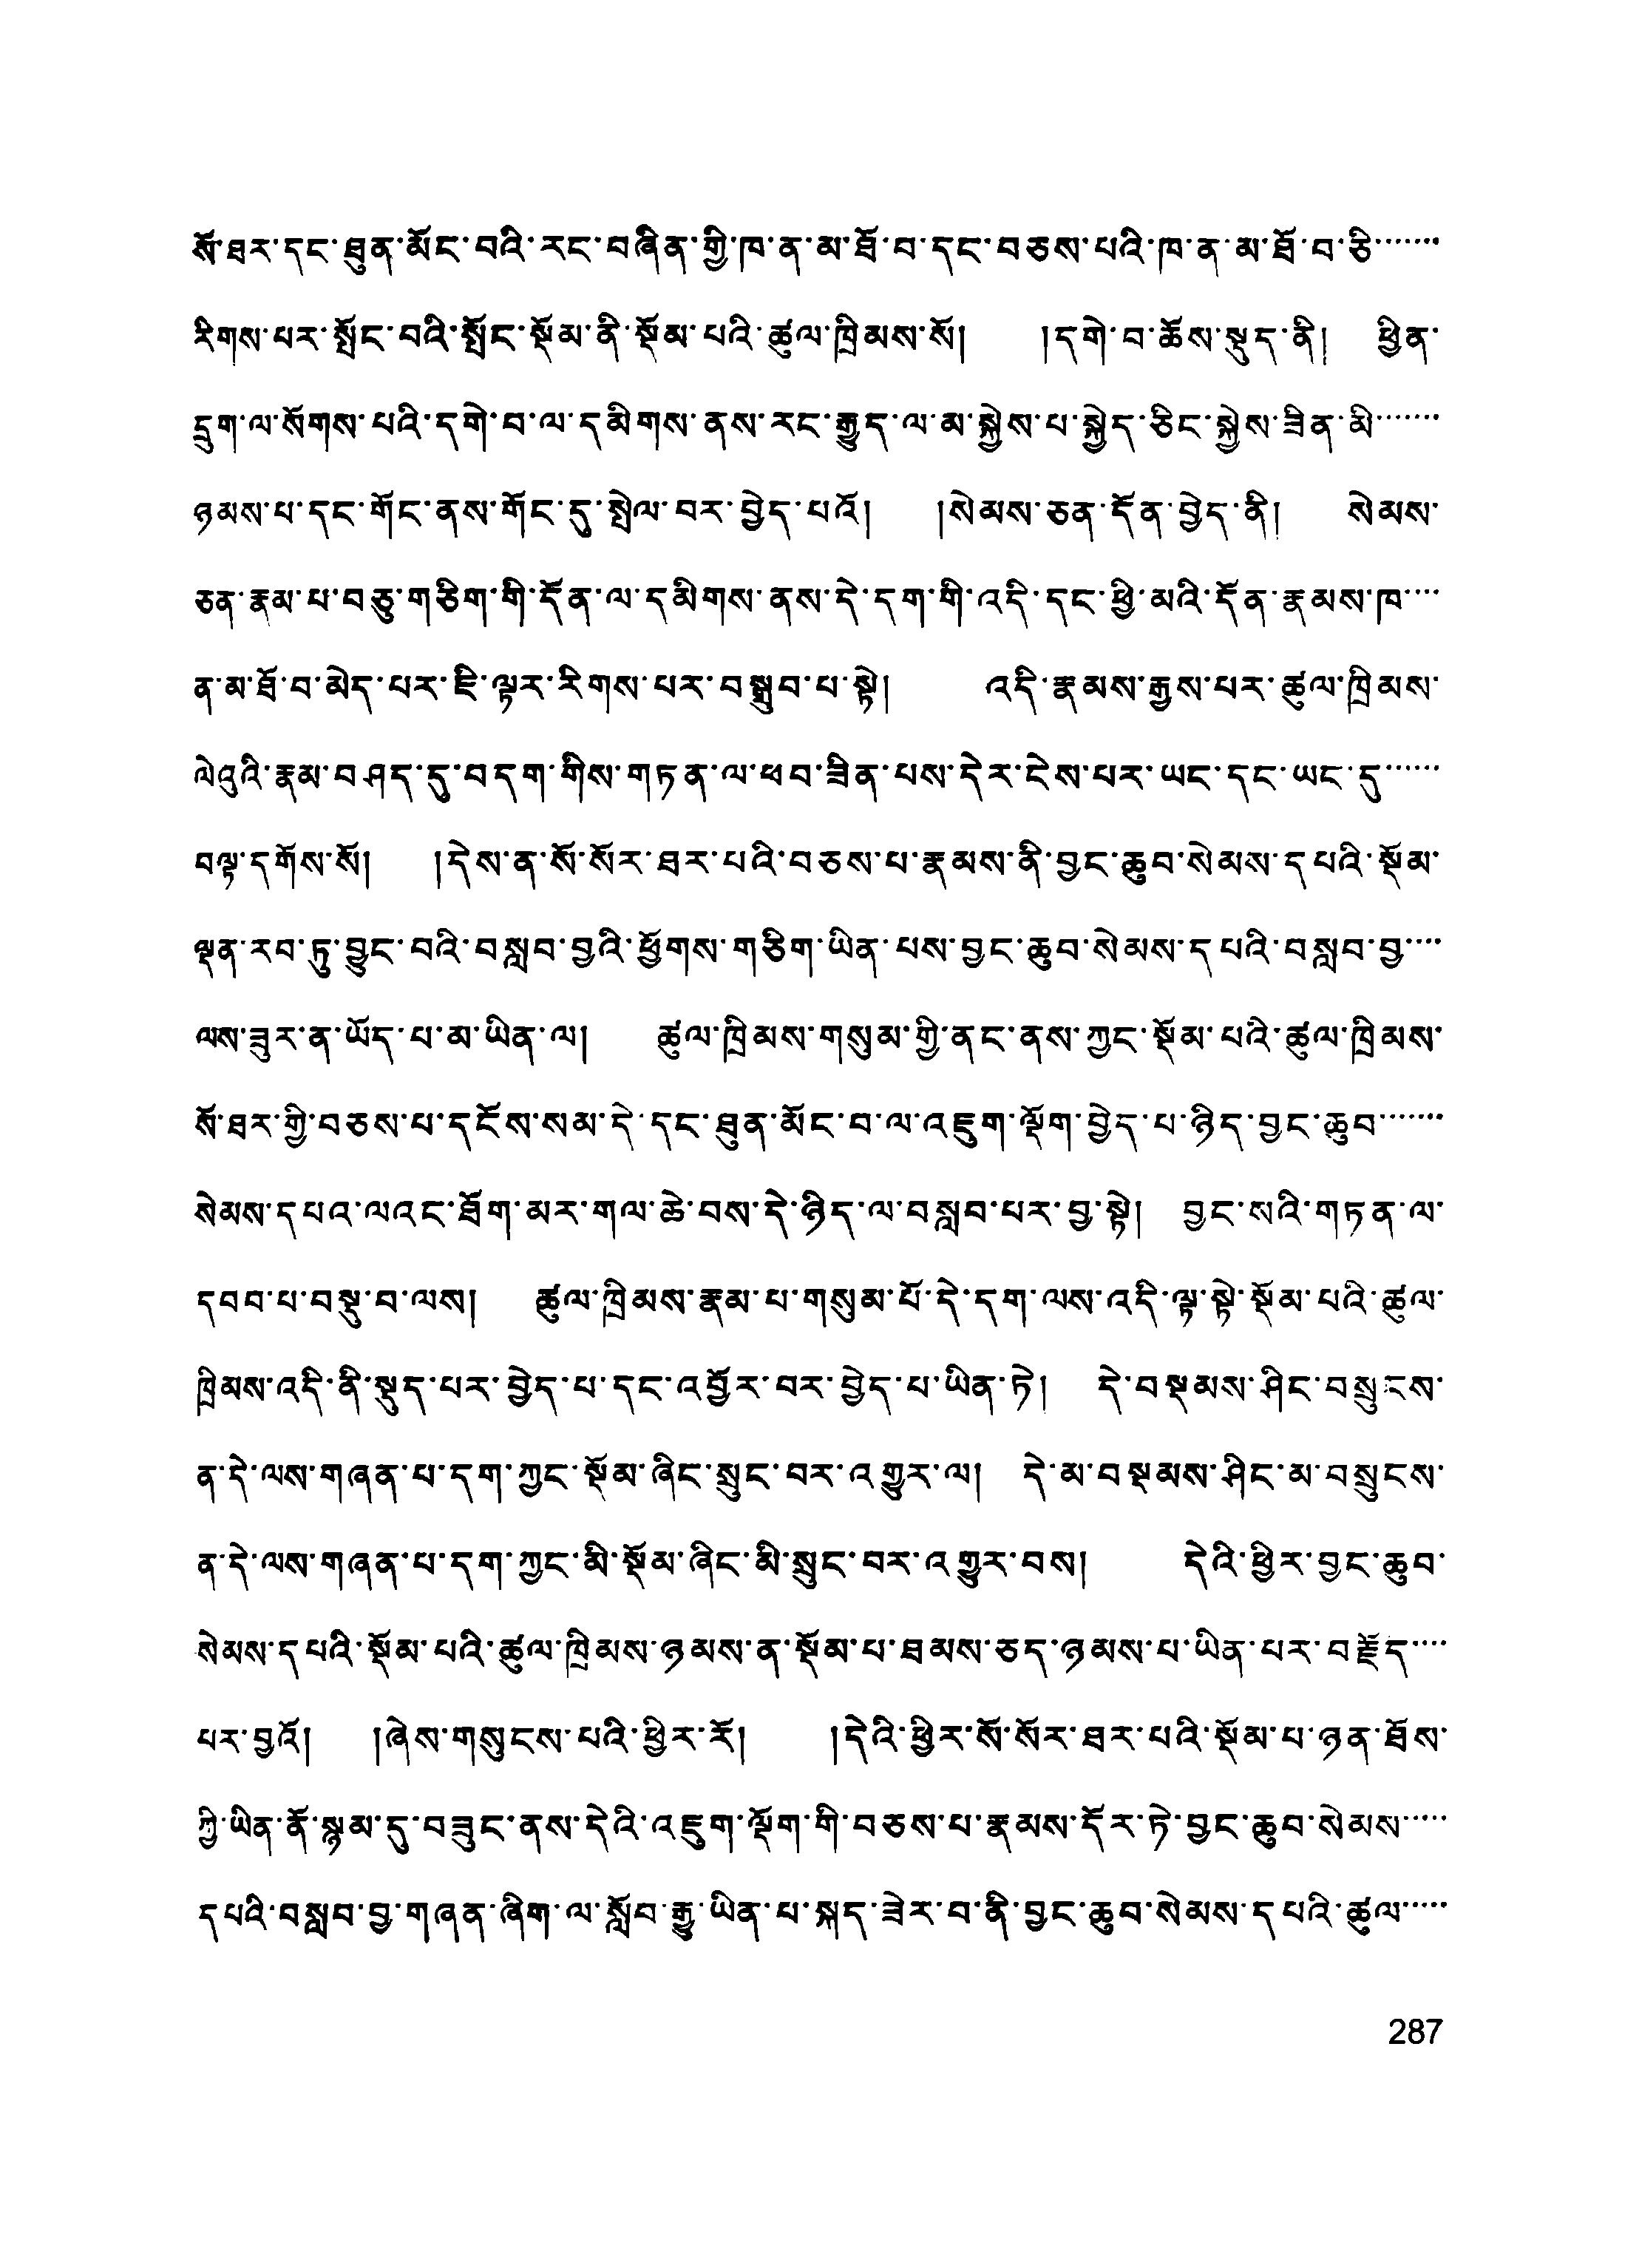 སོ་ཐར་དང་ཐུན་མོང་བའི་རང་བཞིན་གྱི་ཁ་ན་མ་ཐོ་བ་དང་བཅས་པའི་ཁ་ན་མ་ཐོ་བ་ཅི་......
རིགས་པར་སྤོང་བའི་སྤོང་སྡོམ་ནི་སྡོམ་པའི་ཚུལ་ཁྲིམས་སོ། །དགེ་བ་ཆོས་སྡུད་ནི། ཕྱིན་
དྲུག་ལ་སོགས་པའི་དགེ་བ་ལ་དམིགས་ནས་རང་རྒྱུད་ལ་མ་སྐྱེས་པ་སྐྱེད་ཅིང་སྐྱེས་ཟིན་མི་......
ཉམས་པ་དང་གོང་ནས་གོང་དུ་སྤེལ་བར་བྱེད་པའོ། །སེམས་ཅན་དོན་བྱེད་ནི། སེམས་
ཅན་རྣམ་པ་བཅུ་གཅིག་གི་དོན་ལ་དམིགས་ནས་དེ་དག་གི་འདི་དང་ཕྱི་མའི་དོན་རྣམས་ཁ་...
ན་མ་ཐོ་བ་མེད་པར་ཇི་ལྟར་རིགས་པར་བསྒྲུབ་པ་སྟེ། འདི་རྣམས་རྒྱས་པར་ཚུལ་ཁྲིམས་
ལེའུའི་རྣམ་བཤད་དུ་བདག་གིས་གཏན་ལ་ཕབ་ཟིན་པས་དེར་ངེས་པར་ཡང་དང་ཡང་དུ་.....
བལྟ་དགོས་སོ། །དེས་ན་སོ་སོར་ཐར་པའི་བཅས་པ་རྣམས་ནི་བྱང་ཆུབ་སེམས་དཔའི་སྡོམ་
ལྡན་རབ་ཏུ་བྱུང་བའི་བསླབ་བྱའི་ཕྱོགས་གཅིག་ཡིན་པས་བྱང་ཆུབ་སེམས་དཔའི་བསླབ་བྱ་...
ལས་ཟུར་ན་ཡོད་པ་མ་ཡིན་ལ། ཚུལ་ཁྲིམས་གསུམ་གྱི་ནང་ནས་ཀྱང་སྡོམ་པའི་ཚུལ་ཁྲིམས་
སོ་ཐར་གྱི་བཅས་པ་དངོས་སམ་དེ་དང་ཐུན་མོང་བ་ལ་འཇུག་ལྡོག་བྱེད་པ་ཉིད་བྱང་ཆུབ་......
སེམས་དཔའ་ལའང་ཐོག་མར་གལ་ཆེ་བས་དེ་ཉིད་ལ་བསླབ་པར་བྱ་སྟེ། བྱང་སའི་གཏན་ལ་
དབབ་པ་བསྡུ་བ་ལས། ཚུལ་ཁྲིམས་རྣམ་པ་གསུམ་པོ་དེ་དག་ལས་འདི་ལྟ་སྟེ་སྡོམ་པའི་ཚུལ་
ཁྲིམས་འདི་ནི་སྡུད་པར་བྱེད་པ་དང་འབྱོར་བར་བྱེད་པ་ཡིན་ཏེ། དེ་བསྡམས་ཤིང་བསྲུངས་
ན་དེ་ལས་གཞན་པ་དག་ཀྱང་སྡོམ་ཞིང་སྲུང་བར་འགྱུར་ལ། དེ་མ་བསྡམས་ཤིང་མ་བསྲུངས་
ན་དེ་ལས་གཞན་པ་དག་ཀྱང་མི་སྡོམ་ཞིང་མི་སྲུང་བར་འགྱུར་བས། དེའི་ཕྱིར་བྱང་ཆུབ་
སེམས་དཔའི་སྡོམ་པའི་ཚུལ་ཁྲིམས་ཉམས་ན་སྡོམ་པ་ཐམས་ཅད་ཉམས་པ་ཡིན་པར་བརྗོད་...
པར་བྱའོ། །ཞེས་གསུངས་པའི་ཕྱིར་རོ། །དེའི་ཕྱིར་སོ་སོར་ཐར་པའི་སྡོམ་པ་ཉན་ཐོས་
ཀྱི་ཡིན་ནོ་སྙམ་དུ་བཟུང་ནས་དེའི་འཇུག་ལྡོག་གི་བཅས་པ་རྣམས་དོར་ཏེ་བྱང་ཆུབ་སེམས་....
དཔའི་བསླབ་བྱ་གཞན་ཞིག་ལ་སློབ་རྒྱུ་ཡིན་པ་སྐད་ཟེར་བ་ནི་བྱང་ཆུབ་སེམས་དཔའི་ཚུལ་....
287